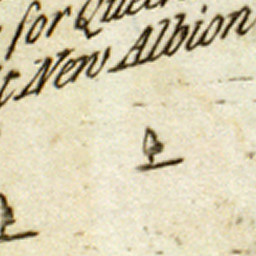 for Queen
New Albion